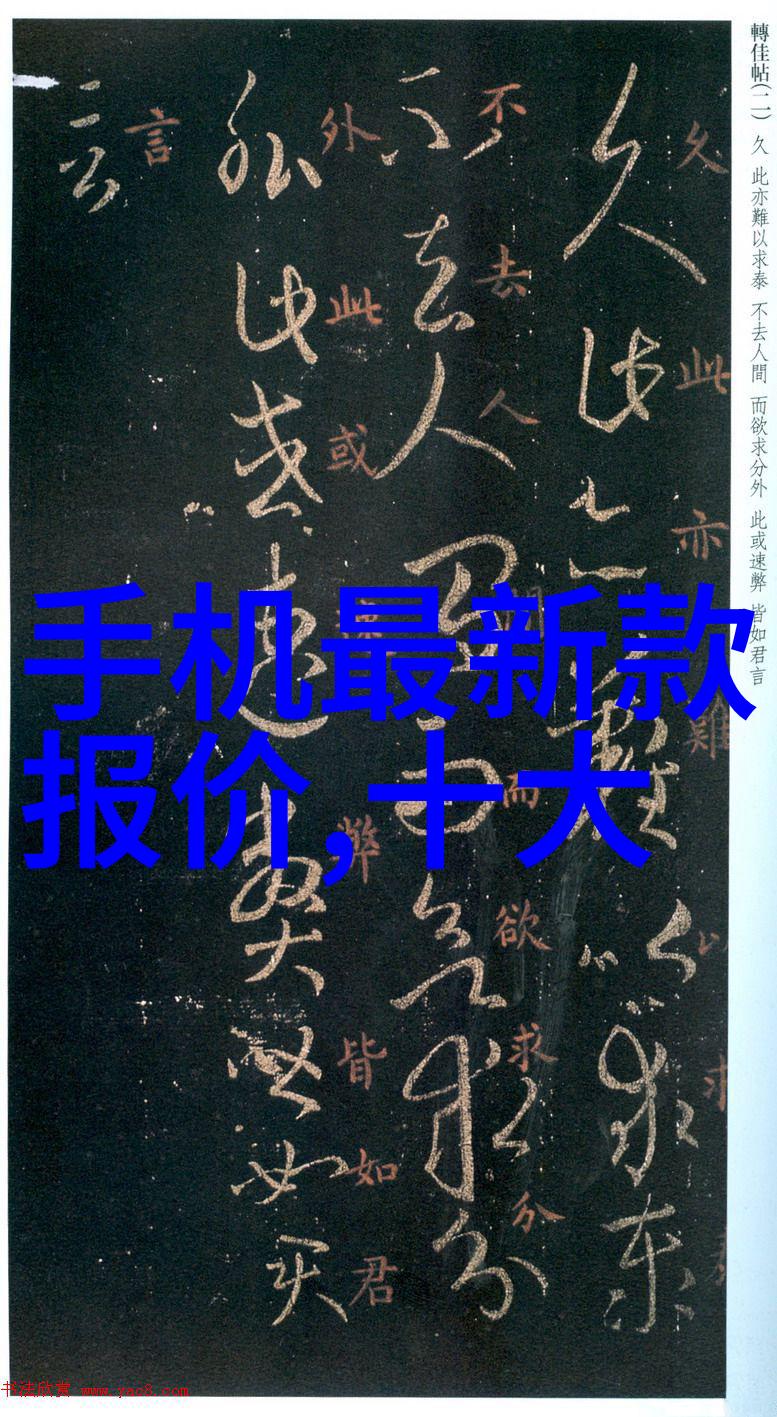 轉佳帖(二) 久 此亦難以求泰 不去人間 而欲求分外 此或速弊 皆如君言
久此亦難以求
不去人間而欲求分
外此或速弊皆如君
言
手机最新款
报价,十大
书法欣赏 www.yac8.com